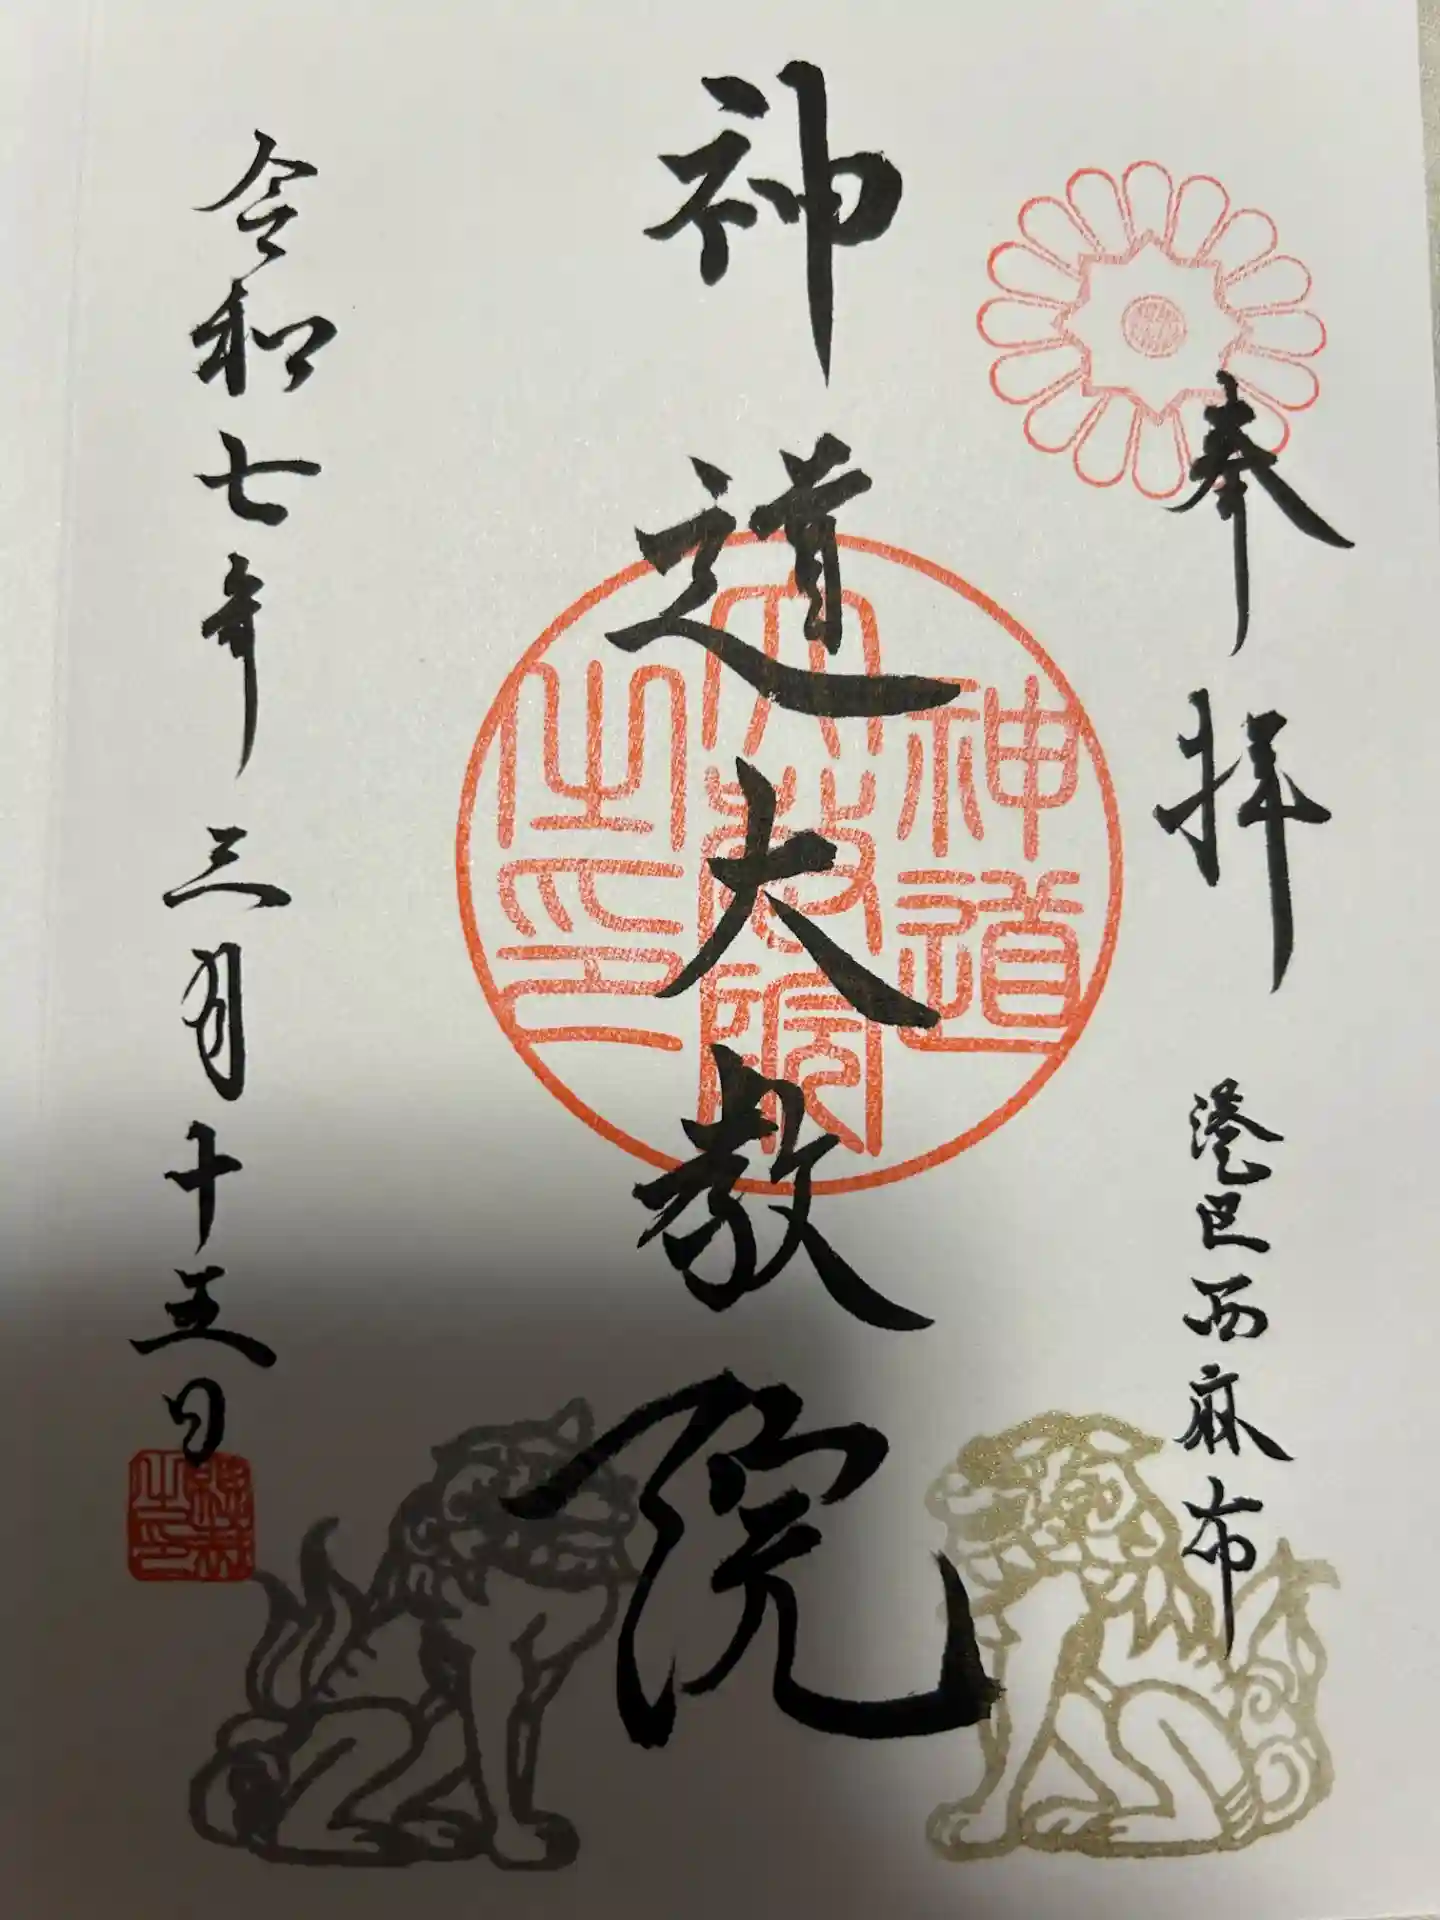 奉拝
港区西麻布
神道大教院
神道
大教院
之印
令和七年三月十五日